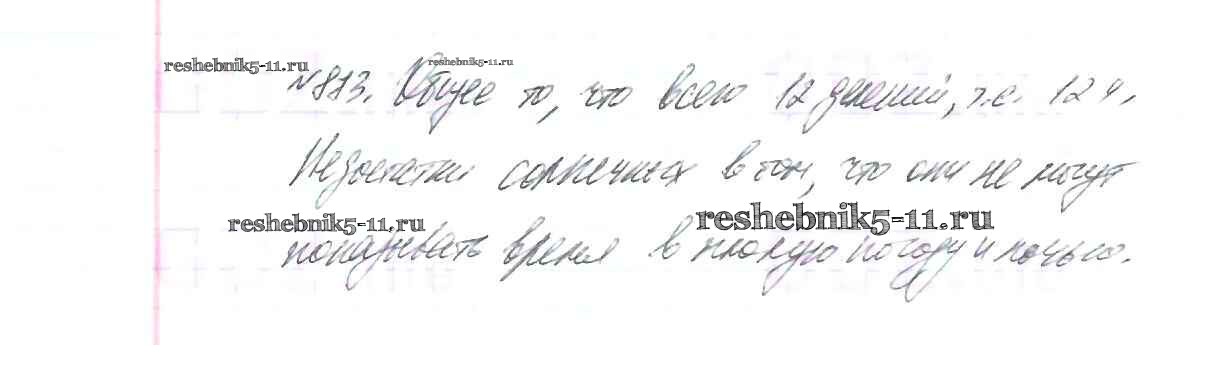 reshebnik5-11.ru reshebnik5-11.ru
№813. Общее то, что всего 12 делений, т.е. 12 ч.
Недостатки солнечных в том, что они не могут
reshebnik5-11.ru reshebnik5-11.ru
показывать время в плохую погоду и ночью.